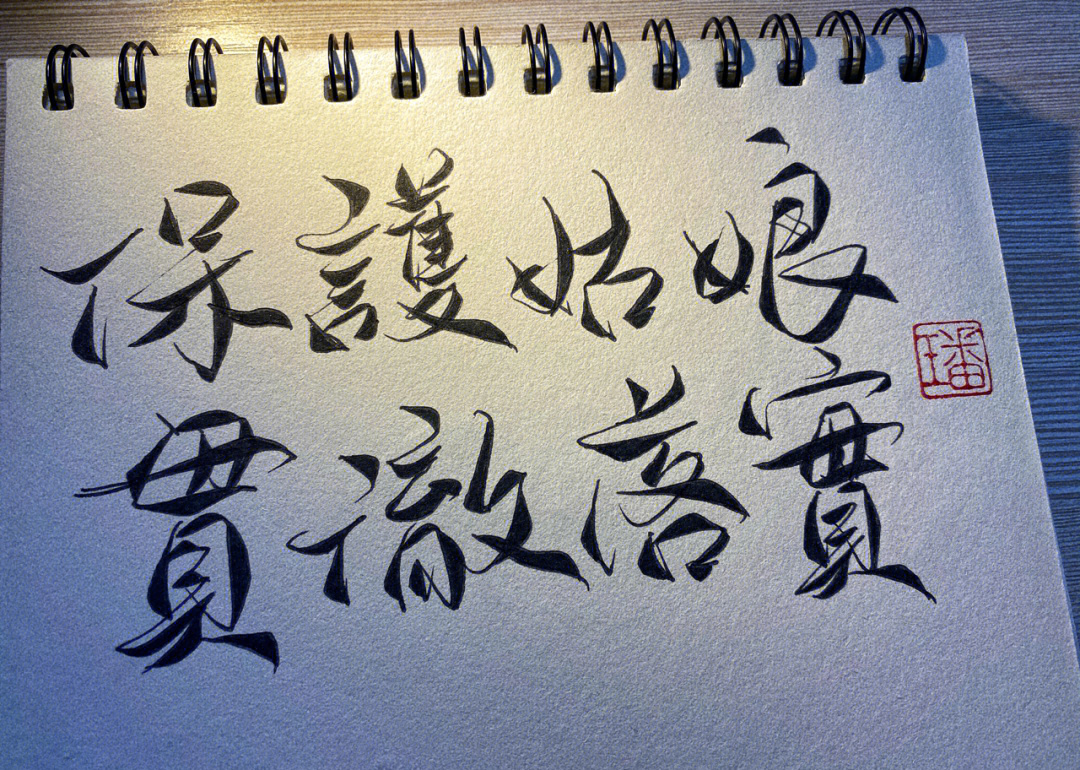 保護姑娘
貫徹落實
璠